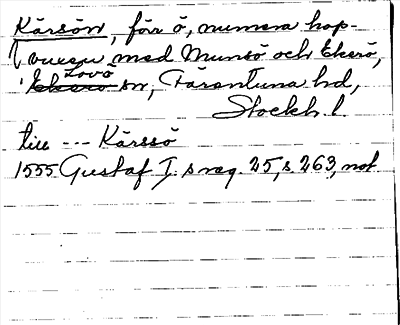 Kärsön, förr ö, numera hop-
vuxen med Munsö och Ekerö,
Lovö
Ekerö sn, Färentuna hd,
Stockh. l.
till --- Kärssö
1555 Gustaf I:s reg. 25, s. 263, not